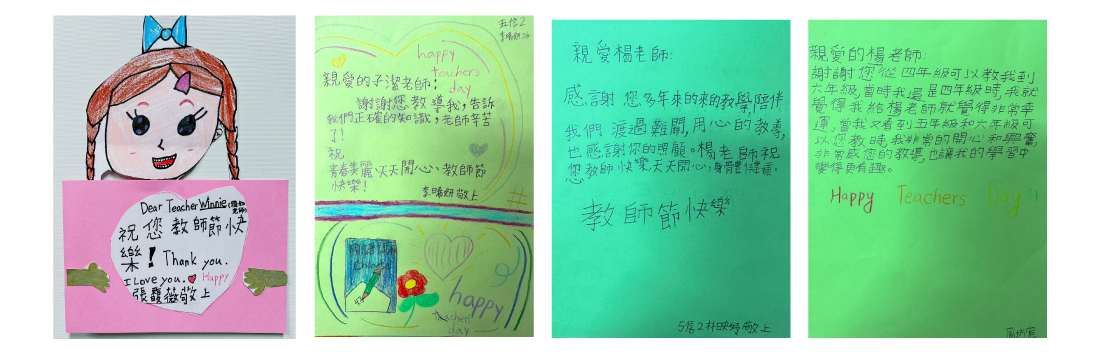 Dear Teacher Winnie
祝您教師節快
樂！Thank you.
I Love you. Happy
張馥薇敬上
五信2
happy
teachers
day
親愛的子潔老師：
謝謝您教導我，告訴
我們正確的知識，老師辛苦
了！
祝
青春美麗天天開心、教師節
快樂！
李晞妍敬上
happy
teachers
day
親愛楊老師：
感謝您多年來的來的教學，陪伴
我們渡過難關，用心的教導，
也感謝您的照顧。楊老師祝
您教師快樂天天開心，身體健康，
教師節快樂
5信2林映妤敬上
親愛的楊老師：
謝謝您從四年級可以教我到
六年級，當時我還是四年級時，我就
覺得我給楊老師就覺得非常幸
運，當我又看到五年級和六年級可
以您教時，我非常的開心和興奮，
非常感您的教導，也讓我的學習中
變得更有趣。
Happy Teachers Day!!